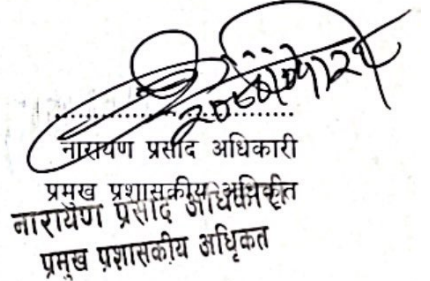 नारायण प्रसाद अधिकारी
प्रमुख प्रशासकीय अधिकृत
नारायण प्रसाद अधिकारी
प्रमुख प्रशासकीय अधिकृत